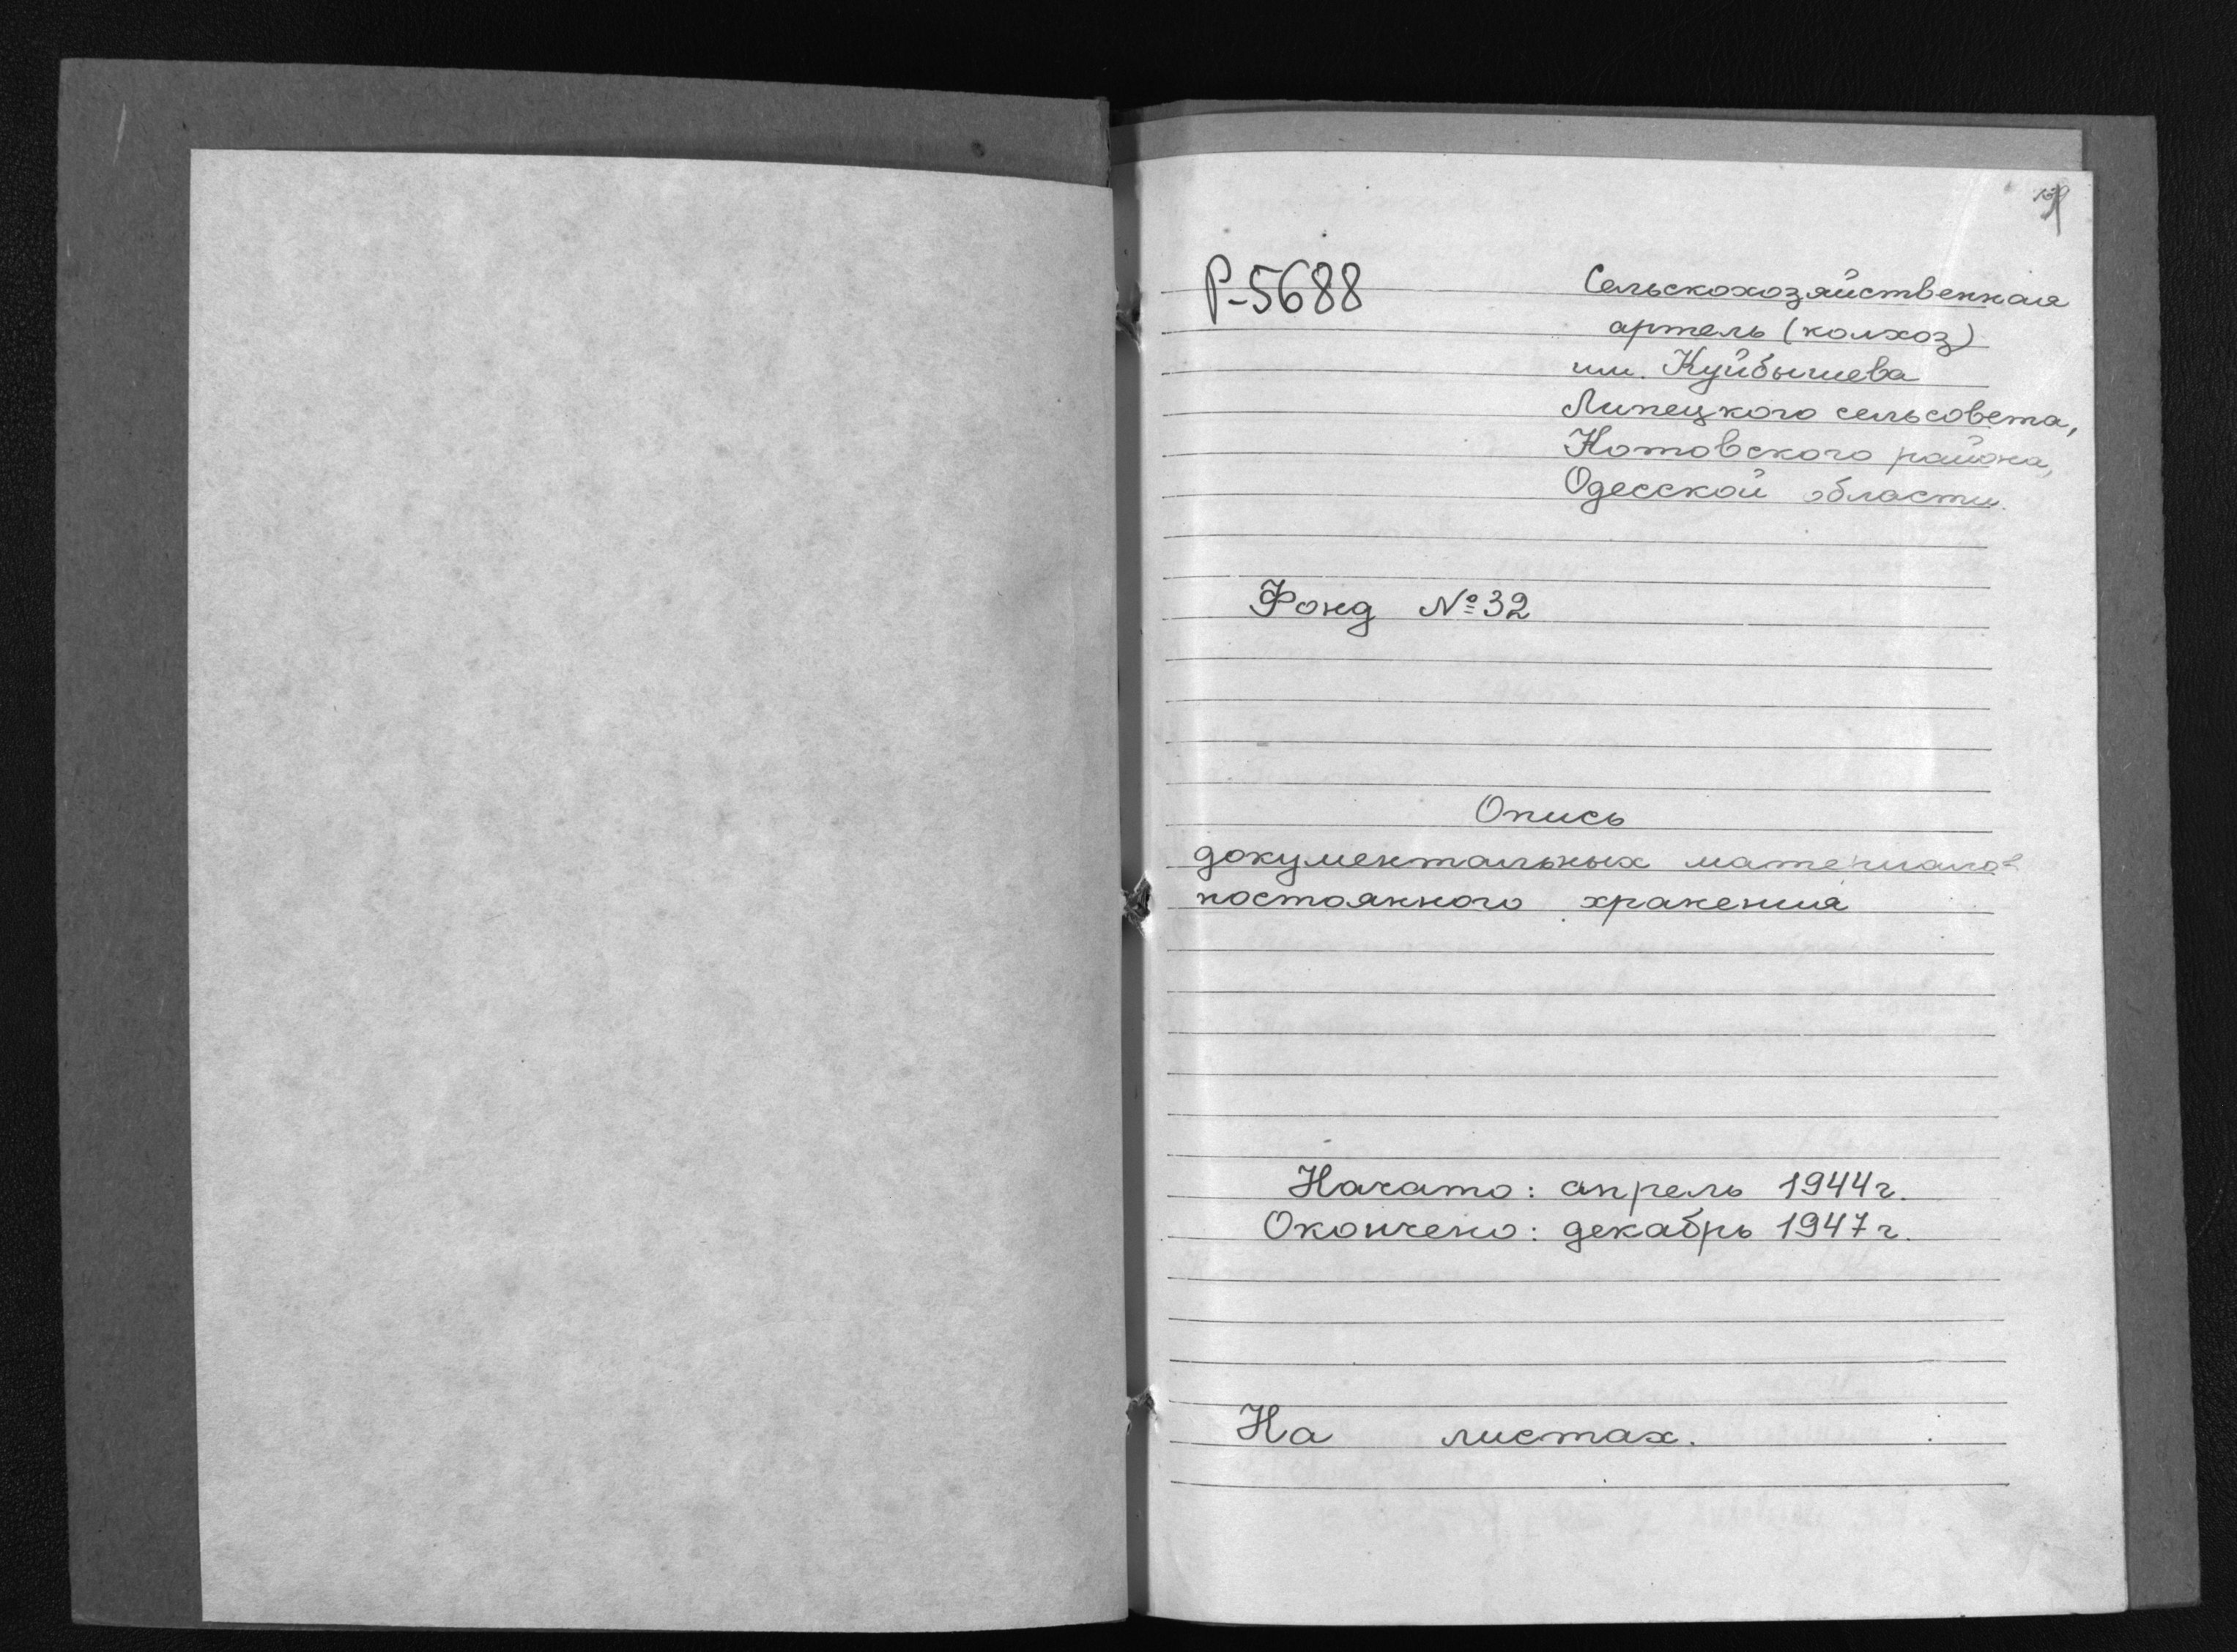 Р-5688
Сельскохозяйственная
артель (колхоз)
им. Куйбышева
Липецкого сельсовета,
Котовского района,
Одесской области.
Фонд №32
Опись
документальных материалов
постоянного хранения
Начато: апрель 1944г.
Окончено: декабрь 1947г.
На листах.